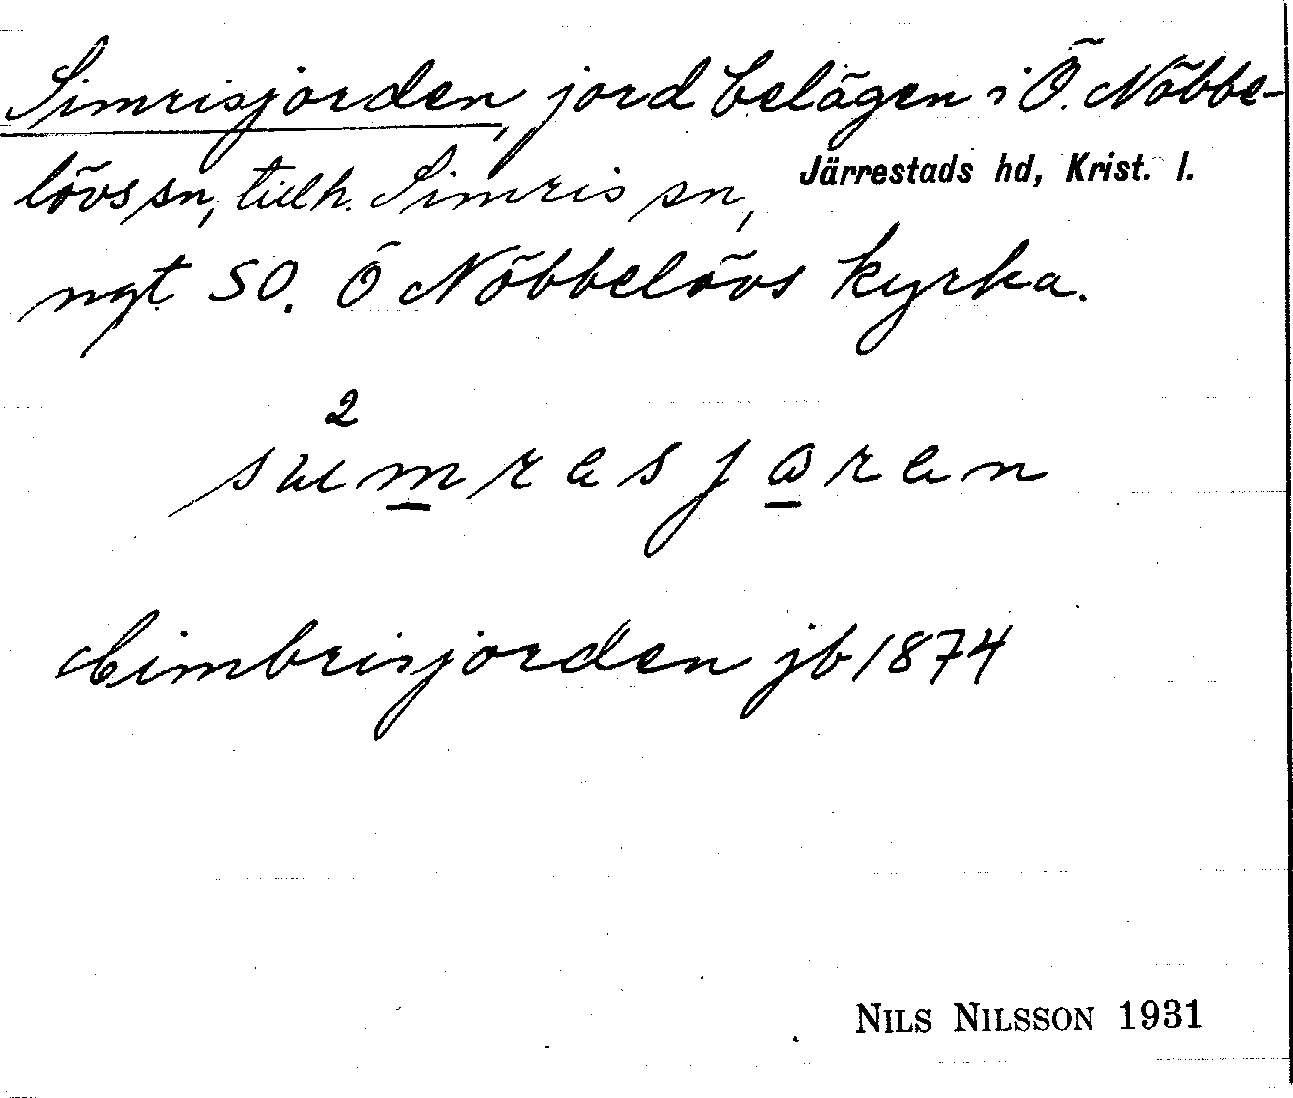 Simrisjorden, jord belägen i Ö. Nöbbe-
lövs sn, tillh. Simris sn, Järrestads hd, Krist. l.
ngt SO. Ö Nöbbelövs kyrka.
2
Cimbrisjorden jb 1874
NILS NILSSON 1931